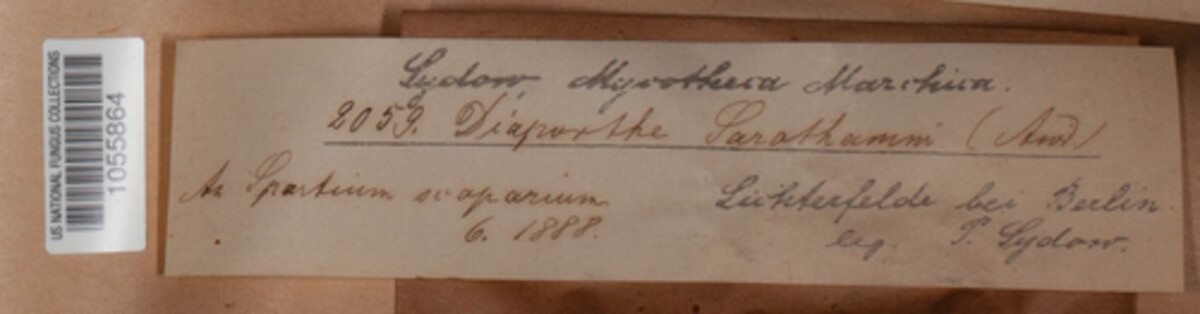 US NATIONAL FUNGUS COLLECTIONS
1055864
Sydow, Mycotheca Marchica.
2059. Diaporthe Sarothamni (Awd)
An Spartium scoparium
6. 1888.
Lichterfelde bei Berlin.
leg. P. Sydow.